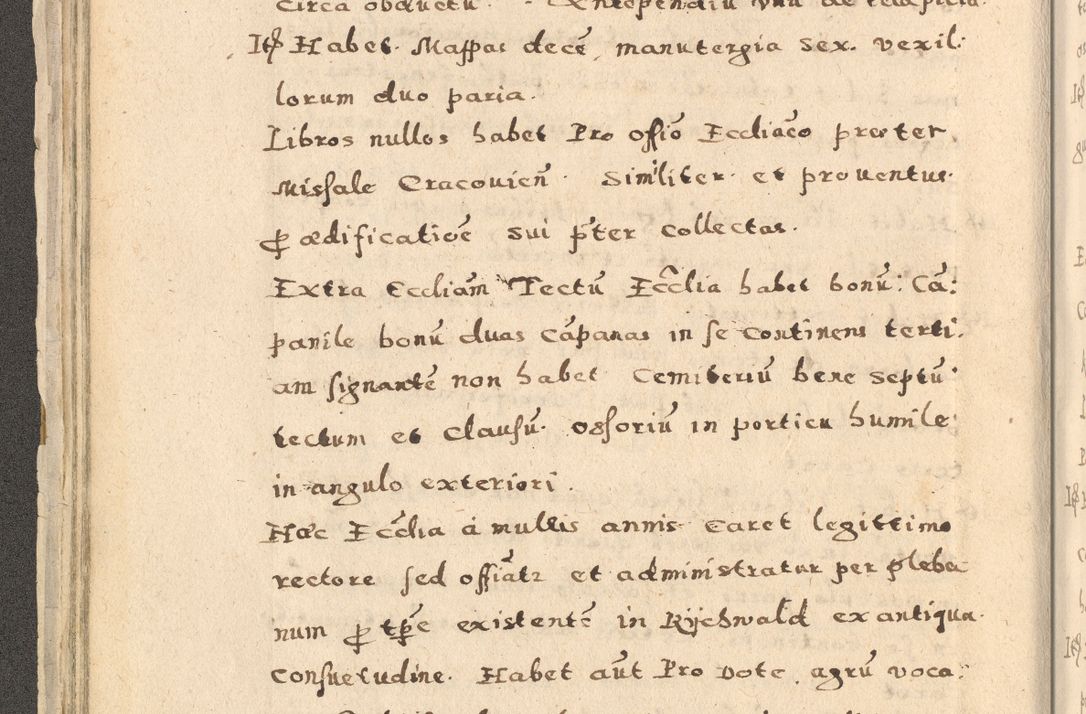 circa obductū.
Itꝫ Habet. Mappas decē, manutergia sex. vexil:
lorum duo paria.
Libros nullos habet Pro offio Eccliaco præter
Missale Cracouien̄. Similiter et prouentus.
ꝓ ædificatioē sui p̄ter collectas.
Extra Eccliam̄ Tectū Ecc̄lia habet bonū: Cā:
panile bonū duas cāpanas in se continens terti:
am signantē non habet Cemiteriū bene septū:
tectum et clausū. ossoriū in porticu humile:
in angulo exteriori.
Hæc Ecc̄lia á multis annis caret legittimo
rectore sed offiāt2 et administratur per pleba:
num ꝓ tp̄e existentē in Rÿchwald ex antiqua.
consuetudine. Habet aūt Pro Dote agrū voca: